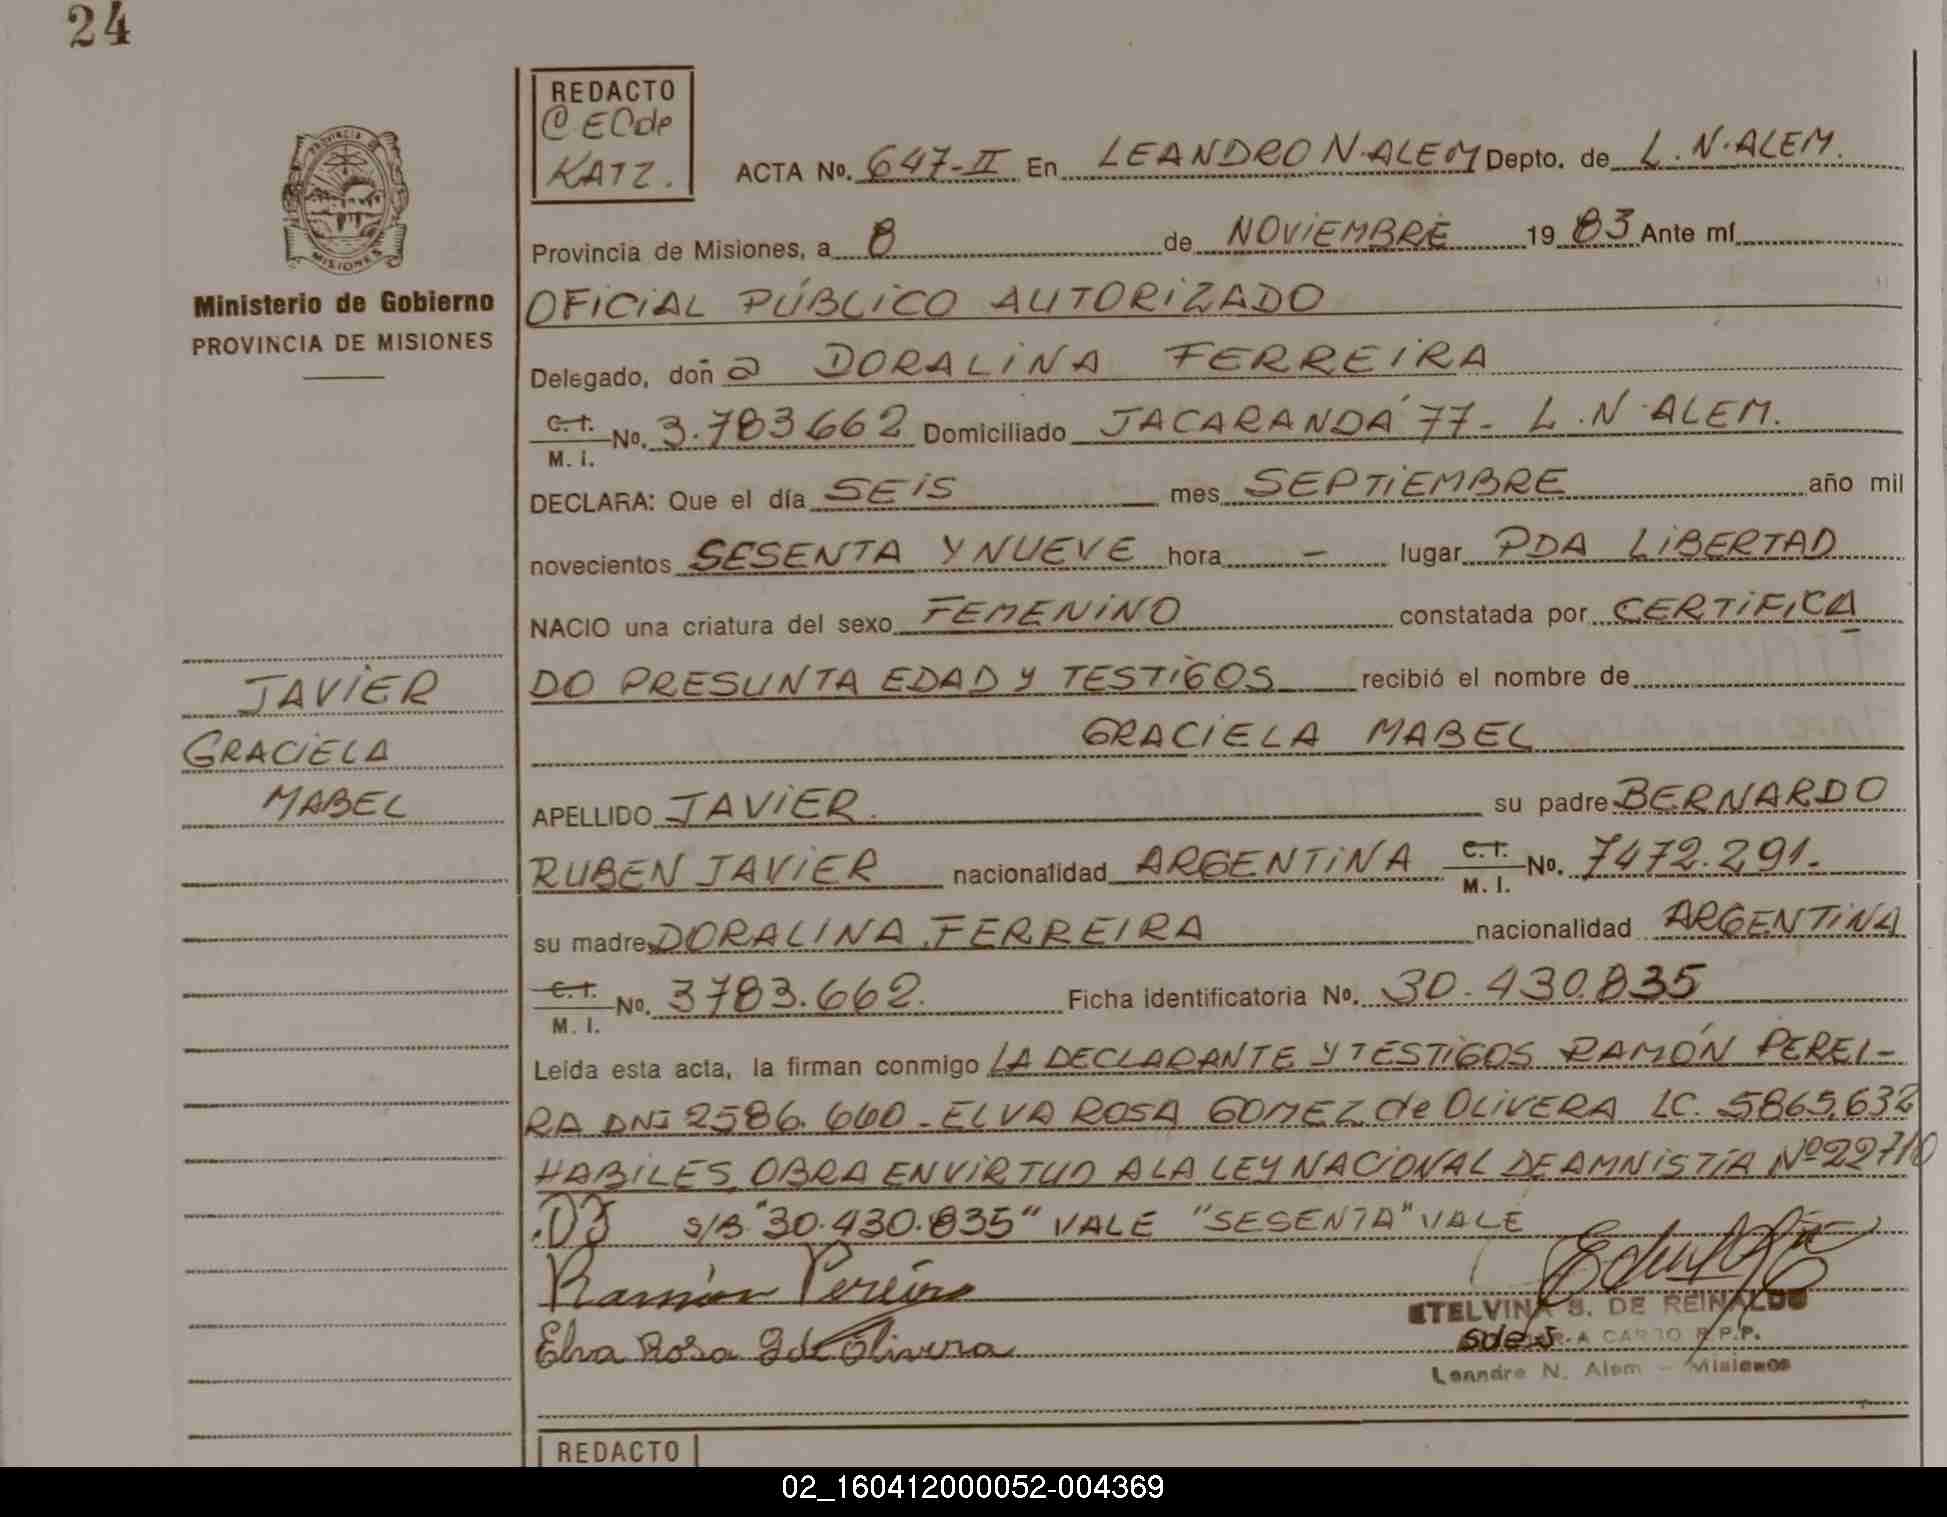 24
REDACTO
KATZ.
ACTA No. 647-II En LEANDRO N. ALEM Depto. de L. N. ALEM.
Provincia de Misiones, a 8 de NOVIEMBRE 1983 Ante mí
OFICIAL PÚBLICO AUTORIZADO
Delegado, doña DORALINA FERREIRA
C. I. M. I. No. 3.783662 Domiciliado JACARANDÁ 77- L. N. ALEM.
DECLARA: Que el día SEIS mes SEPTIEMBRE año mil
novecientos SESENTA Y NUEVE hora - lugar PDA LIBERTAD
NACIO una criatura del sexo FEMENINO constatada por CERTIFICA
DO PRESUNTA EDAD Y TESTIGOS recibió el nombre de
GRACIELA MABEL
APELLIDO JAVIER. su padre BERNARDO
RUBEN JAVIER nacionalidad ARGENTINA C. I. M. I. No. 7472.291.
su madre DORALINA FERREIRA nacionalidad ARGENTINA
C. I. M. I. No. 3783.662. Ficha identificatoria No. 30.430.835
Leída esta acta, la firman conmigo LA DECLARANTE Y TESTIGOS RAMÓN PEREI-
RA DNI 2586.660 - ELVA ROSA GOMEZ de OLIVERA LC. 5865.632
HABILES, OBRA EN VIRTUD A LA LEY NACIONAL DE AMNISTÍA Nº 22710
.DJ s/B "30.430.835" VALE "SESENTA" VALE
Ramón Pereira
Elva Rosa G de Olivera
ETELVINA S. DE REINALDO
A CARGO R.P.P.
Leandro N. Alem - Misiones
REDACTO
PROVINCIA
MISIONES
Ministerio de Gobierno
PROVINCIA DE MISIONES
JAVIER
GRACIELA
MABEL
02_160412000052-004369